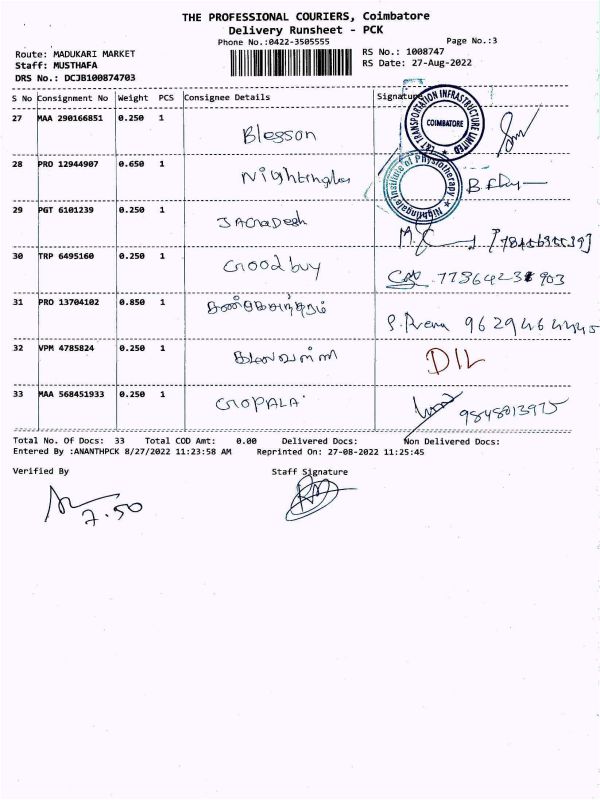 THE PROFESSIONAL COURIERS, Coimbatore
Delivery Runsheet - PCK
Phone No.:0422-3505555
Page No.:3
Route: MADUKARI MARKET
RS No.: 1008747
Staff: MUSTHAFA
RS Date: 27-Aug-2022
DRS No.: DCJB100874703
S No Consignment No Weight PCS Consignee Details Signature
L&T TRANSPORTATION INFRASTRUCTURE LIMITED
COIMBATORE
27 MAA 290166851 0.250 1 Blesson
Nightingale Institute of Physiotherapy
28 PRO 12944907 0.650 1 Nightingles
29 PGT 6101239 0.250 1 JAGaDesh
30 TRP 6495160 0.250 1 Goodbuy
31 PRO 13704102 0.850 1
32 VPM 4785824 0.250 1 DIL
33 MAA 568451933 0.250 1 GOPALA 9848813975
Total No. Of Docs: 33 Total COD Amt: 0.00 Delivered Docs: Non Delivered Docs:
Entered By :ANANTHPCK 8/27/2022 11:23:58 AM Reprinted On: 27-08-2022 11:25:45
Verified By Staff Signature
7.50